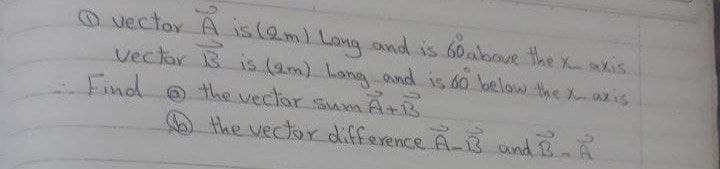 ① vector A⃗ is (2m) Long and is 60° above the x axis
vector B⃗ is (2m) Long and is 60° below the x-axis
Find ⓐ the vector sum A⃗+B⃗
ⓑ the vector difference A⃗-B⃗ and B⃗-A⃗